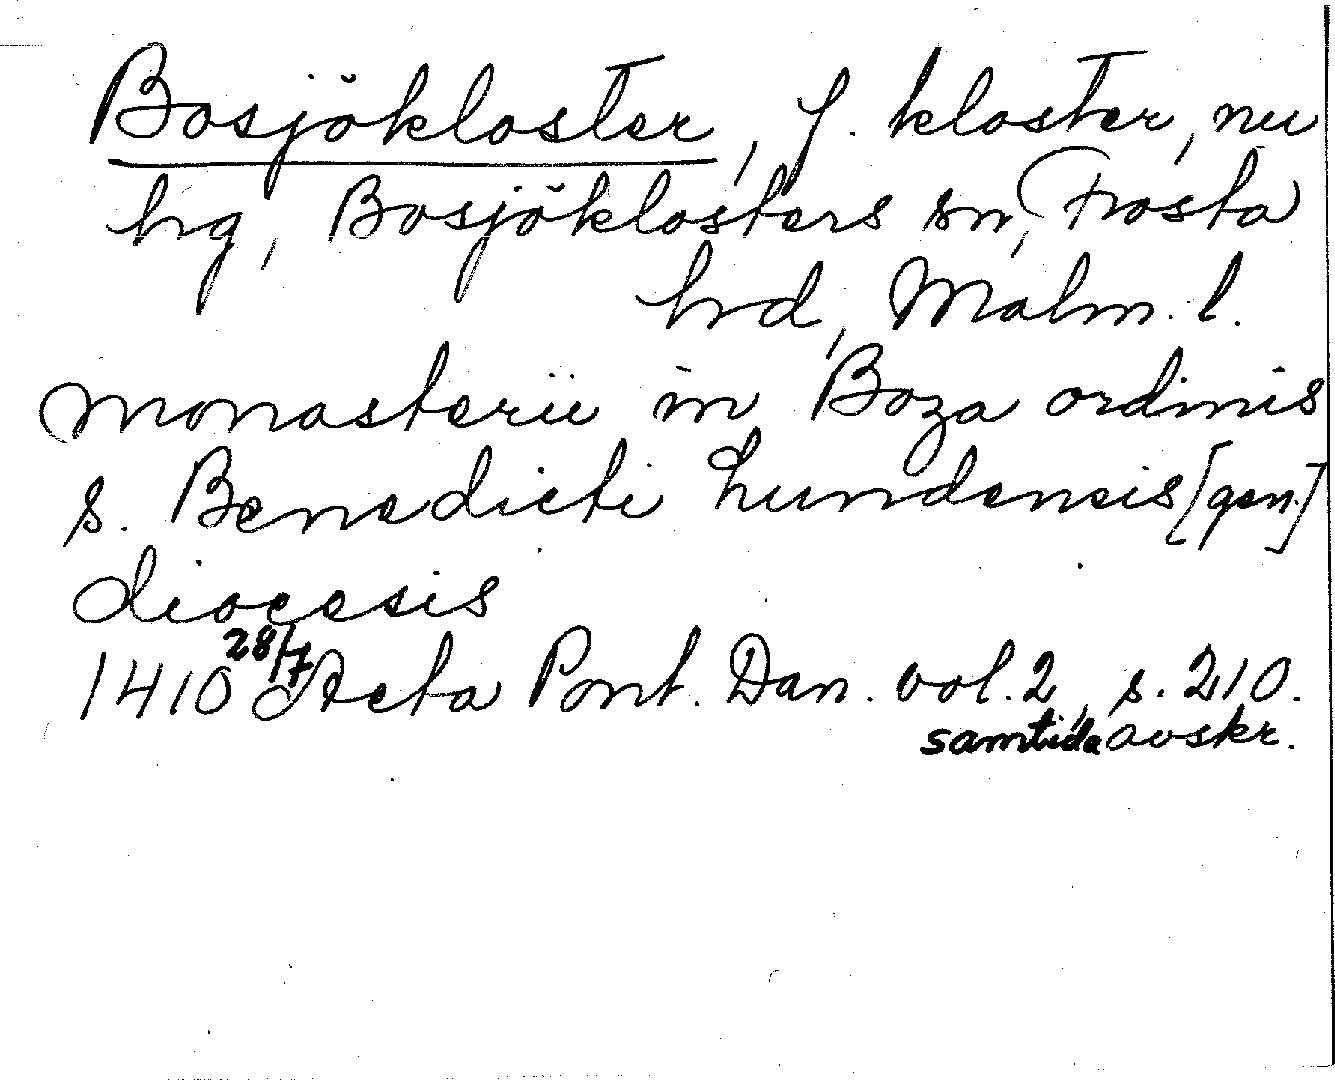 Bosjökloster, f. kloster, nu
hg, Bosjöklosters sn, Frosta
hrd, Malm. l.
monasterii in Boza ordinis
s. Benedicti Lundensis [gen.]
diocesis
1410 28/7 Acta Pont. Dan. vol. 2, s. 210.
samtida avskr.